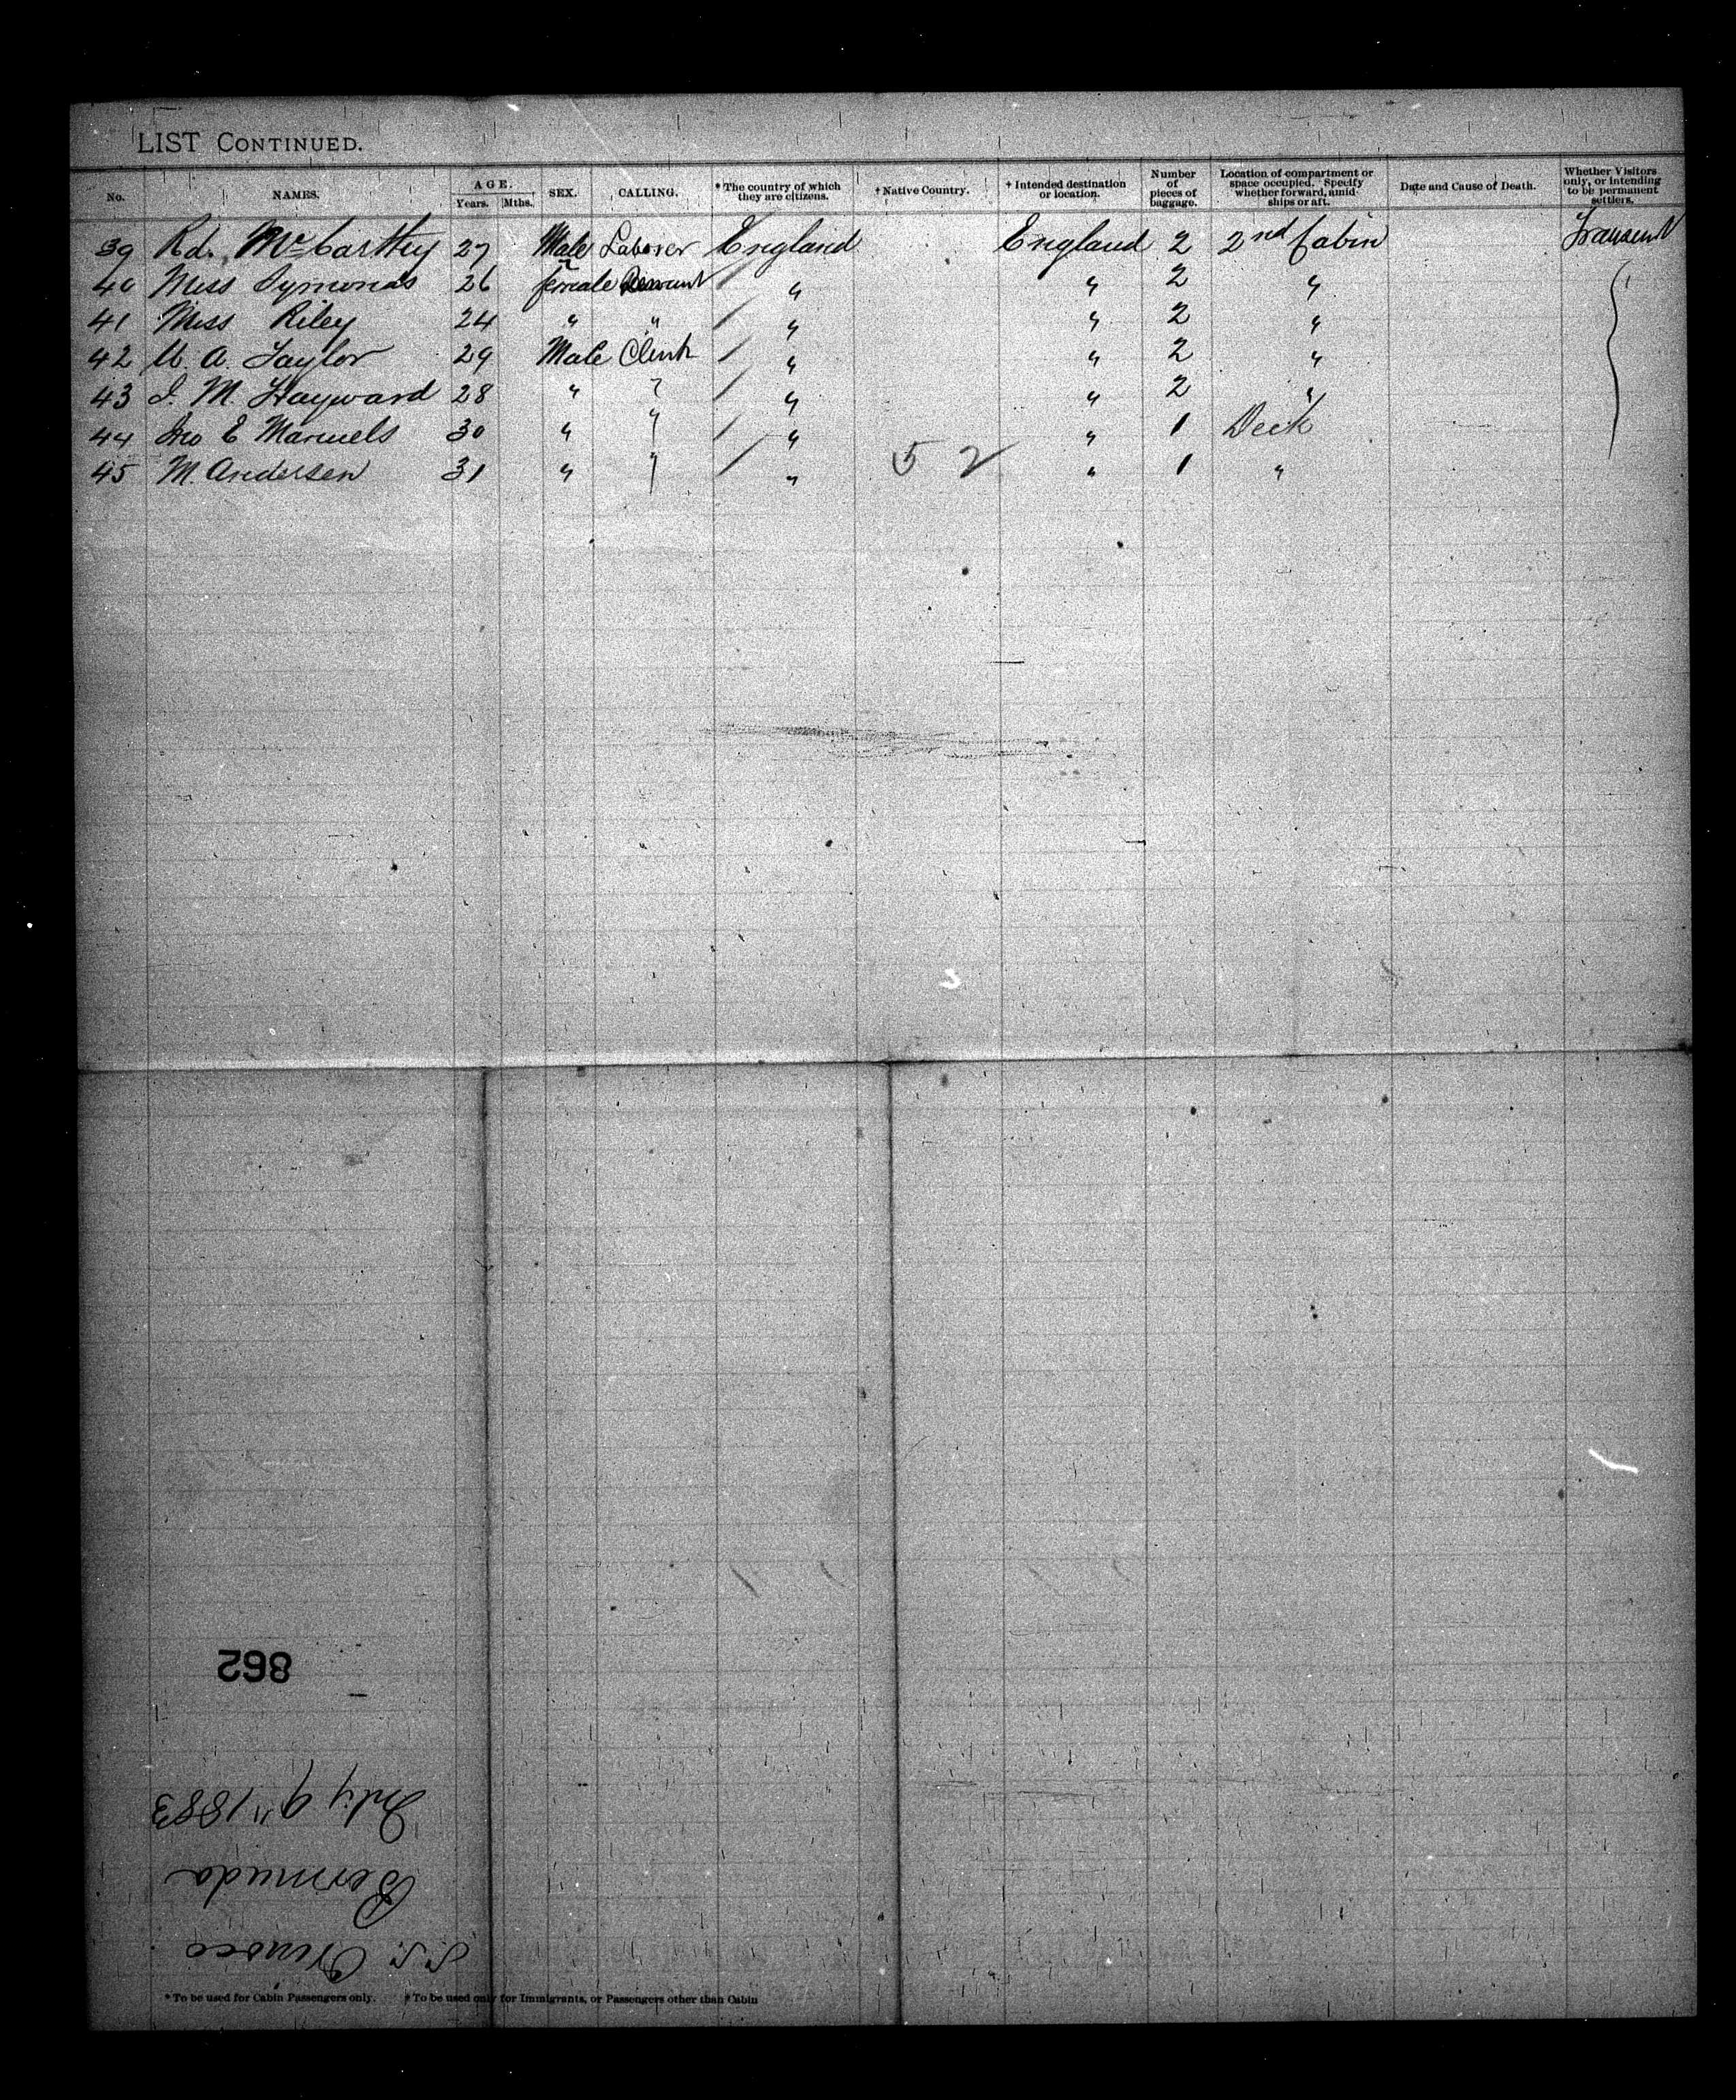 LIST CONTINUED.
No. NAMES. AGE. Years. Mths. SEX. CALLING. * The country of which they are citizens. † Native Country. † Intended destination or location. Number of pieces of baggage. Location of compartment or space occupied. Specify whether forward, amidships or aft. Date and Cause of Death. Whether Visitors only, or intending to be permanent settlers.
39 Rd. McCarthy 27 Male Laborer England England 2 2nd Cabin Transent
40 Miss Symonds 26 female Servant / " " 2 "
41 Miss Riley 24 " " / " " 2 "
42 A. Taylor 29 Male Clerk / " " 2 "
43 M Hayward 28 " " / " " 2 "
44 Jno E 30 " " / " " 1 Deck
45 M. Andersen 31 " " / " 52 " 1 "
862
July 9" 1883
Bermuda
S.S. Orinoco
* To be used for Cabin Passengers only. † To be used only for Immigrants, or Passengers other than Cabin